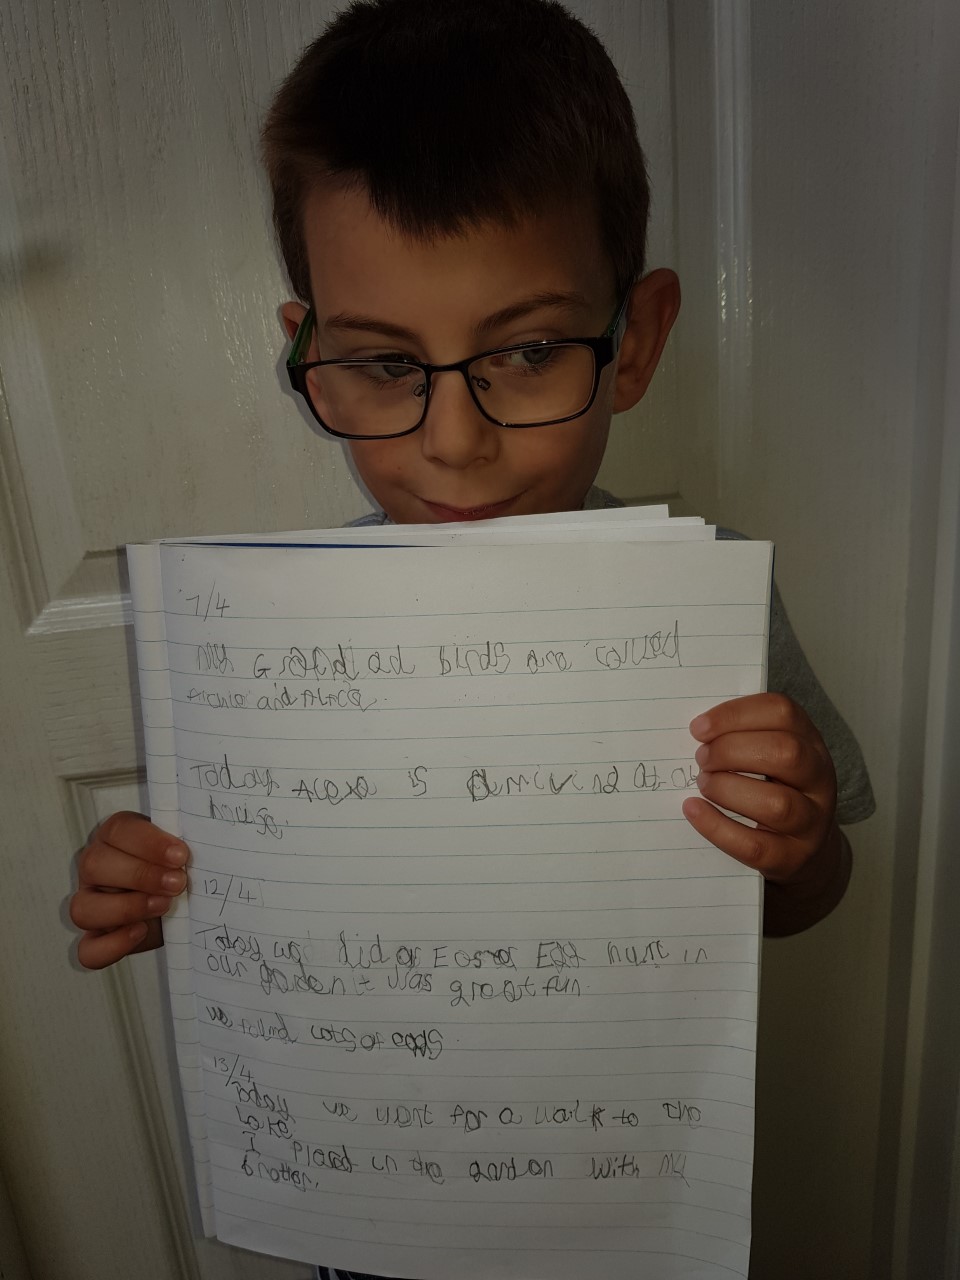 7/4
My Grandad birds are called
Archie and Alice.
Today Alexa is arriving at our
house.
12/4
Today we did a Easter Egg hunt in
our garden it was great fun.
we found lots of eggs
13/4
Today we went for a walk to the
lake.
I played in the garden with my
brother.